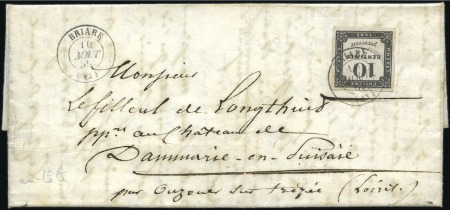 BRIARE
10
AOUT
10
CENTIMES
à percevoir
Monsieur
Lefilleul de Longthuit
ppre au Château de
Dammarie-en-Puisaie
par Ouzouer sur trézée (Loiret.)